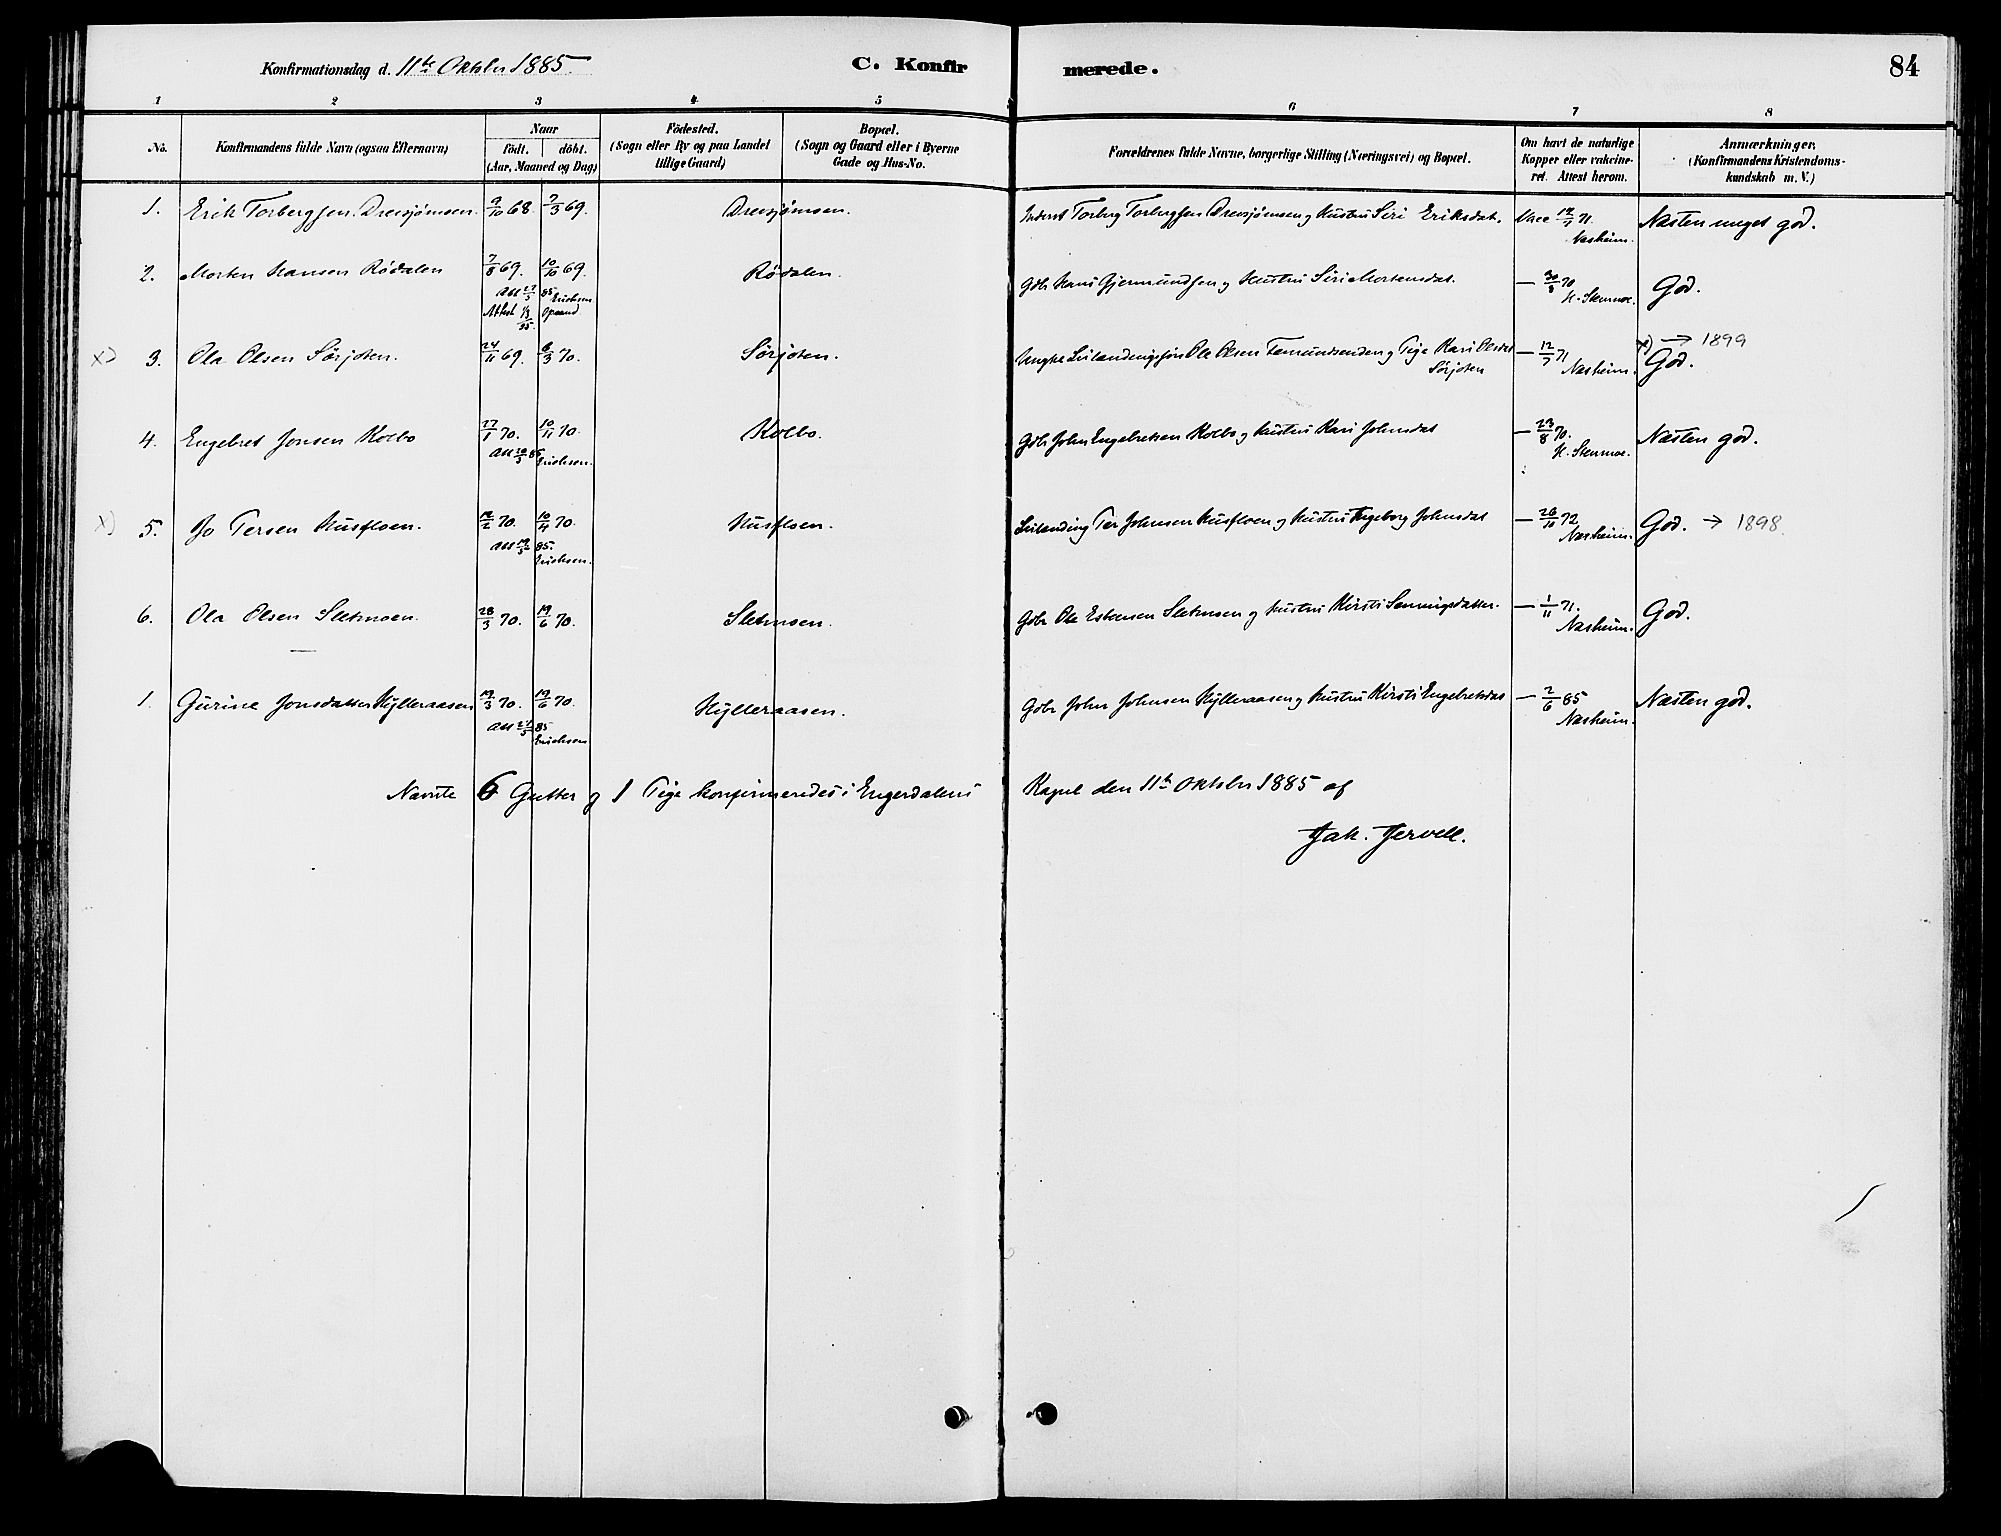 Konfirmationsdag d. 11te Oktober 1885.
C. Konfirmerede.
84
1 2 3 4 5 6 7 8
No.
Konfirmandens fulde Navn (ogsaa Efternavn)
Naar
födt. döbt.
(Aar, Maaned og Dag)
Födested.
(Sogn eller By og paa Landet tillige Gaard)
Bopæl.
(Sogn og Gaard eller i Byerne Gade og Hus-No.
Forældrenes fulde Navne, borgerlige Stilling (Næringsvei) og Bopæl.
Om havt de naturlige Kopper eller vakcineret. Attest herom.
Anmærkninger.
(Konfirmandens Kristendomskundskab m. V.)
1. Erik Torbergsen Drevsjømoen. 9/10 68. 7/3 69. Drevsjømoen. Inderst Torberg Torbergsen Drevsjømoen og Hustru Siri Eriksdat. Vacc 71. Næsten meget god.
Næsheim.
2. Morten Hansen Rödalen 7/8 69. 10/10 69. Rödalen. Gdbr Hans Gjermundsen og Hustru Siri Mortensdat. — 30/8 70 God.
Att 27/5 85 Erichsen H. Stenmoe.
Attest 1/3 95 Opsand
x) 3. Ola Olsen Sörjoten. 24/11 69. 6/3 70. Sörjoten. Ungkr Leilændingssön Ole Olsen Femundsenden og Pige Kari Olsdat — 12/7 71 x) → 1899
Sörjoten Næsheim. God.
4. Engebret Jonsen Kolbo 27/1 70. 10/11 70. Kolbo. Gdbr John Engebretsen Kolbo og Hustru Kari Johnsdat — 23/8 70. Næsten god.
Att 85 Erichsen. H. Stenmoe.
x) 5. Jo Persen Husfloen. 70. 10/4 70. Husfloen. Leilænding Per Johnsen Husfloen og Hustru Ingeborg Johnsdat — 26/10 72 God. → 1898
Att 19/5 85. Erichsen. Næsheim.
6. Ola Olsen Sletmoen. 28/3 70. 19/6 70. Sletmoen. Gdbr Ole Estensen Sletmoen og Hustru Kirsti — 1/11 71. God.
Næsheim.
1. Gurine Jonsdatter Hylleraasen 19/3 70. 19/6 70. Hylleraasen. Gdbr John Johnsen Hylleraasen og Hustru Kirsti Engebretsdat — 2/6 85 Næsten god.
Att 27/5 85 Erichsen Næsheim.
Nævnte 6 Gutter og 1 Pige konfirmeredes i Engerdalens Kapel den 11te Oktober 1885 af
Jak. Jervell.